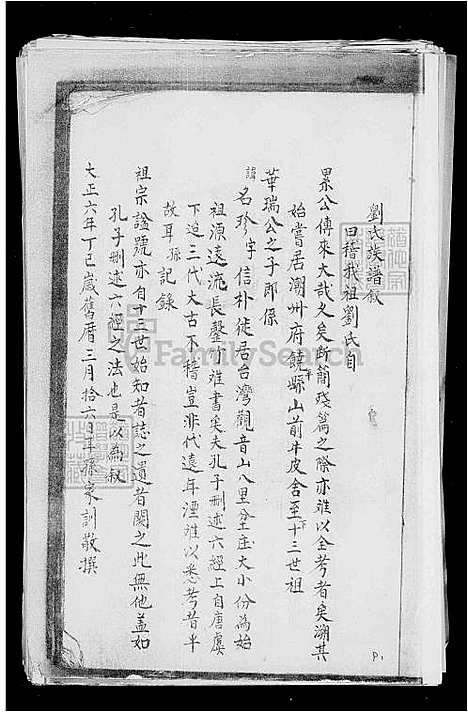 劉氏族譜叙
曰稽我祖劉氏自
累公傳來大哉久矣断簡殘篇之際亦难以全考者矣溯其
始嘗居潮州府饒平縣山前牛皮舍至十三世祖
華瑞公之子即係
諱名珍字信朴徙居台灣觀音山八里坌庄大小份為始
祖源遠流長罄竹难書矣夫孔子刪述六經上自唐虞
下迄三代太古不稽豈非代遠年湮难以悉考昔平
故耳孫記錄
祖宗諡號亦自十三世始知者誌之遺者闕之此無他盖如
孔子刪述六經之法也是以為叙
大正六年丁巳歲舊曆三月拾六日耳孫家訓敬撰
P.1
FamilySearch